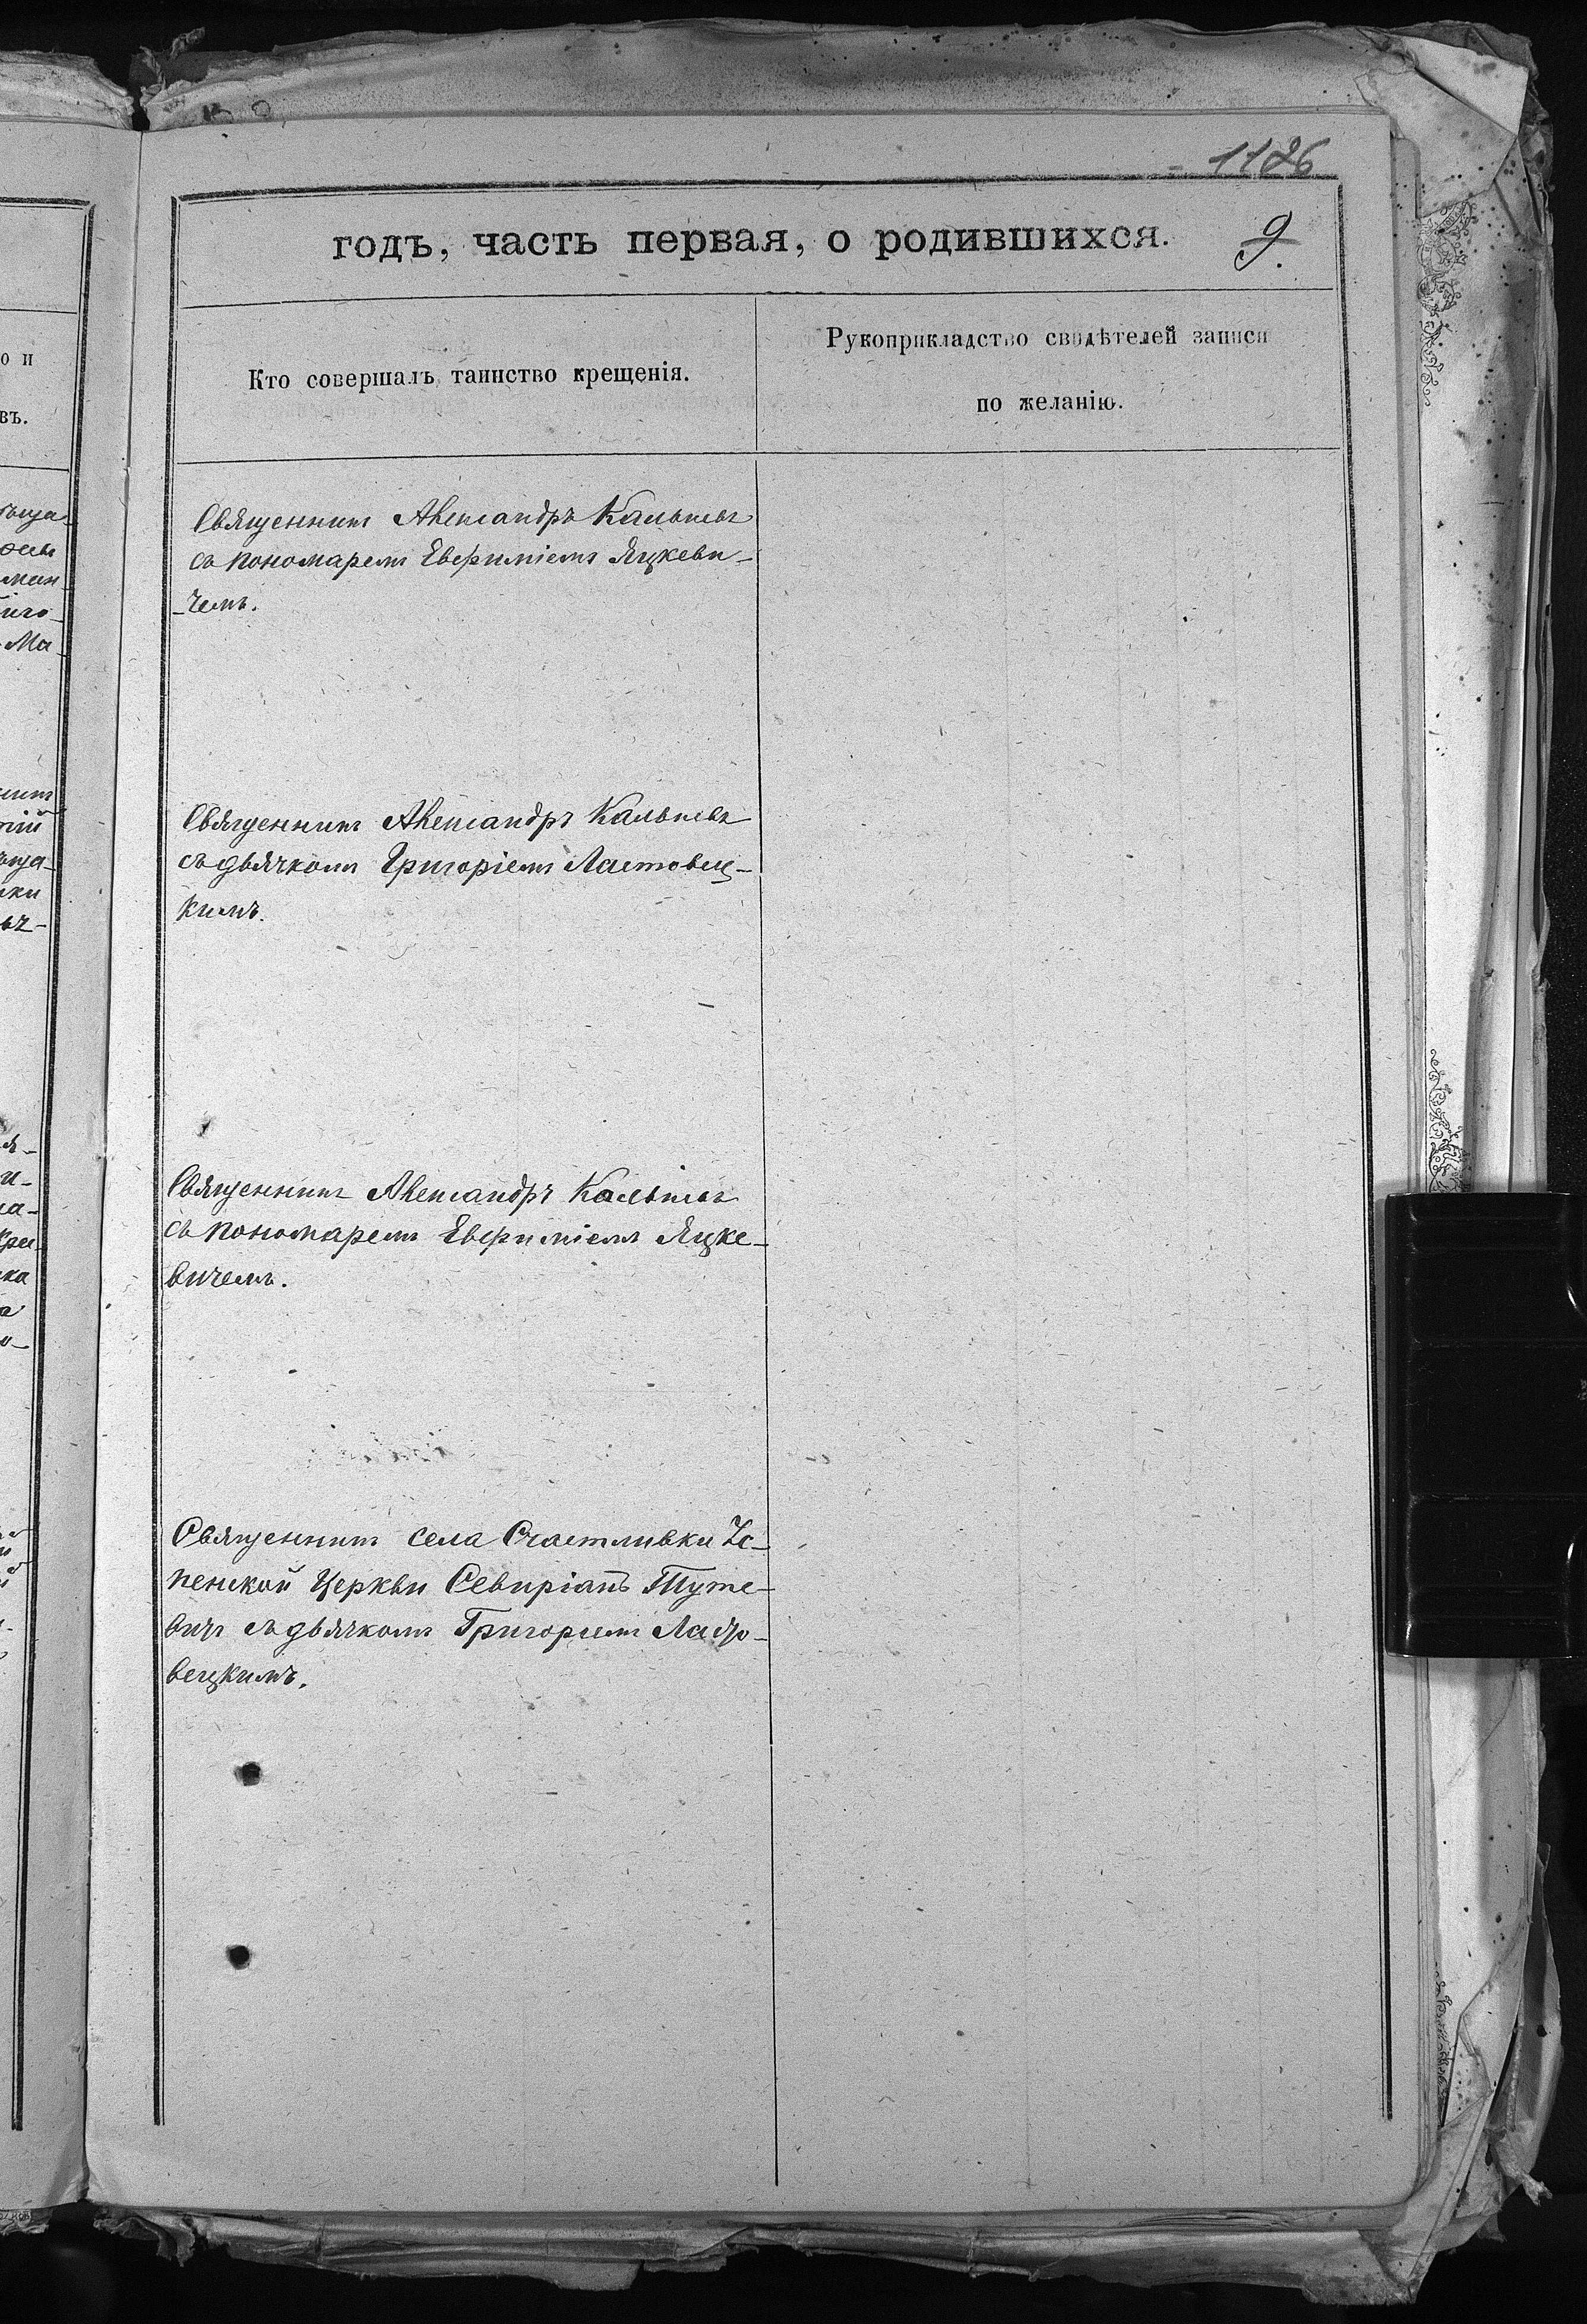 1126
годъ, часть первая, о родившихся. 9.
Кто совершалъ таинство крещенія.
Рукоприкладство свидѣтелей записи
по желанію.
Священникъ Александръ
съ пономаремъ Евфиміемъ Яцкеви-
-чемъ.
Священникъ Александръ
съ дьячкомъ Григоріемъ Ластовец-
кимъ.
Священникъ Александръ
съ пономаремъ Евфиміемъ Яцке-
вичемъ.
Священникъ села Счастливки Ус-
пенской Церкви Севиріанъ
съ дьячкомъ Григоріемъ Ласто-
вецкимъ.
о и
въ.
Ма-